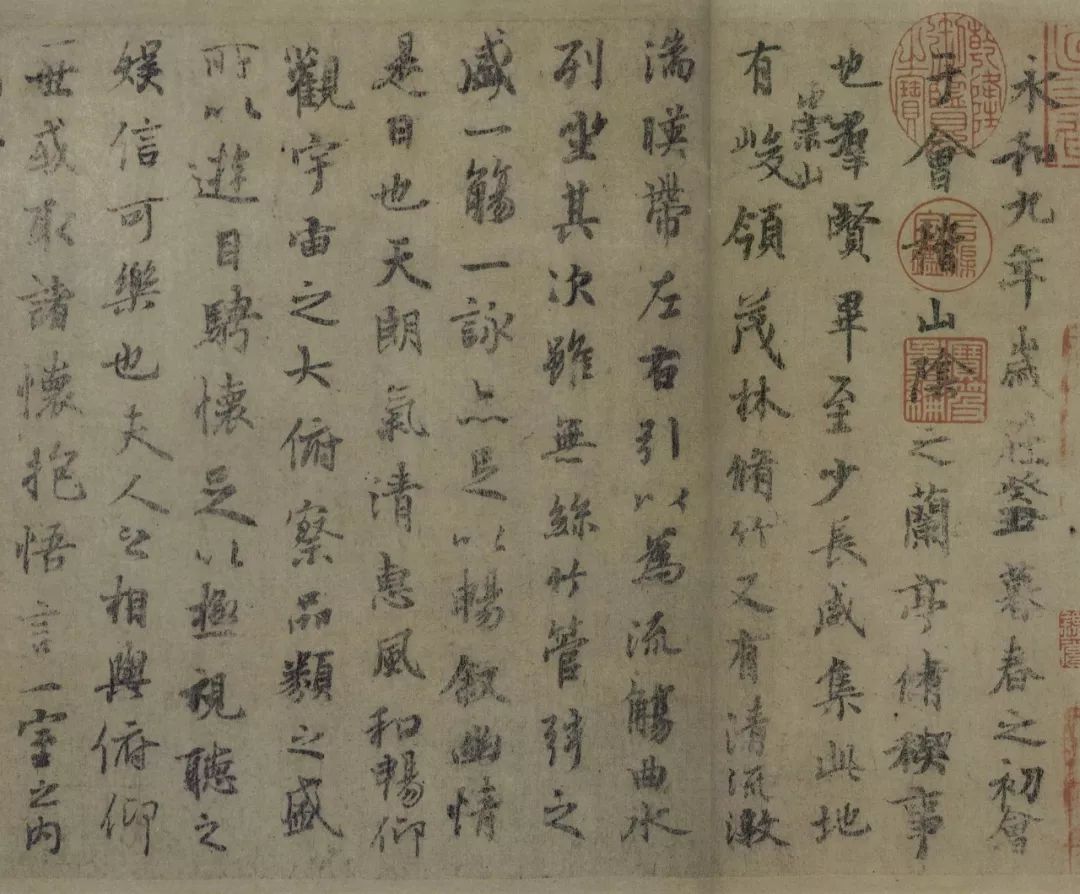 永和九年歲在癸丑暮春之初會
于會稽山陰之蘭亭脩稧事
也羣賢畢至少長咸集此地
崇山
有峻領茂林脩竹又有清流激
湍暎帶左右引以為流觴曲水
列坐其次雖無絲竹管弦之
盛一觴一詠亦足以暢敘幽情
是日也天朗氣清惠風和暢仰
觀宇宙之大俯察品類之盛
所以遊目騁懷足以極視聽之
娛信可樂也夫人之相與俯仰
一世或取諸懷抱悟言一室之內